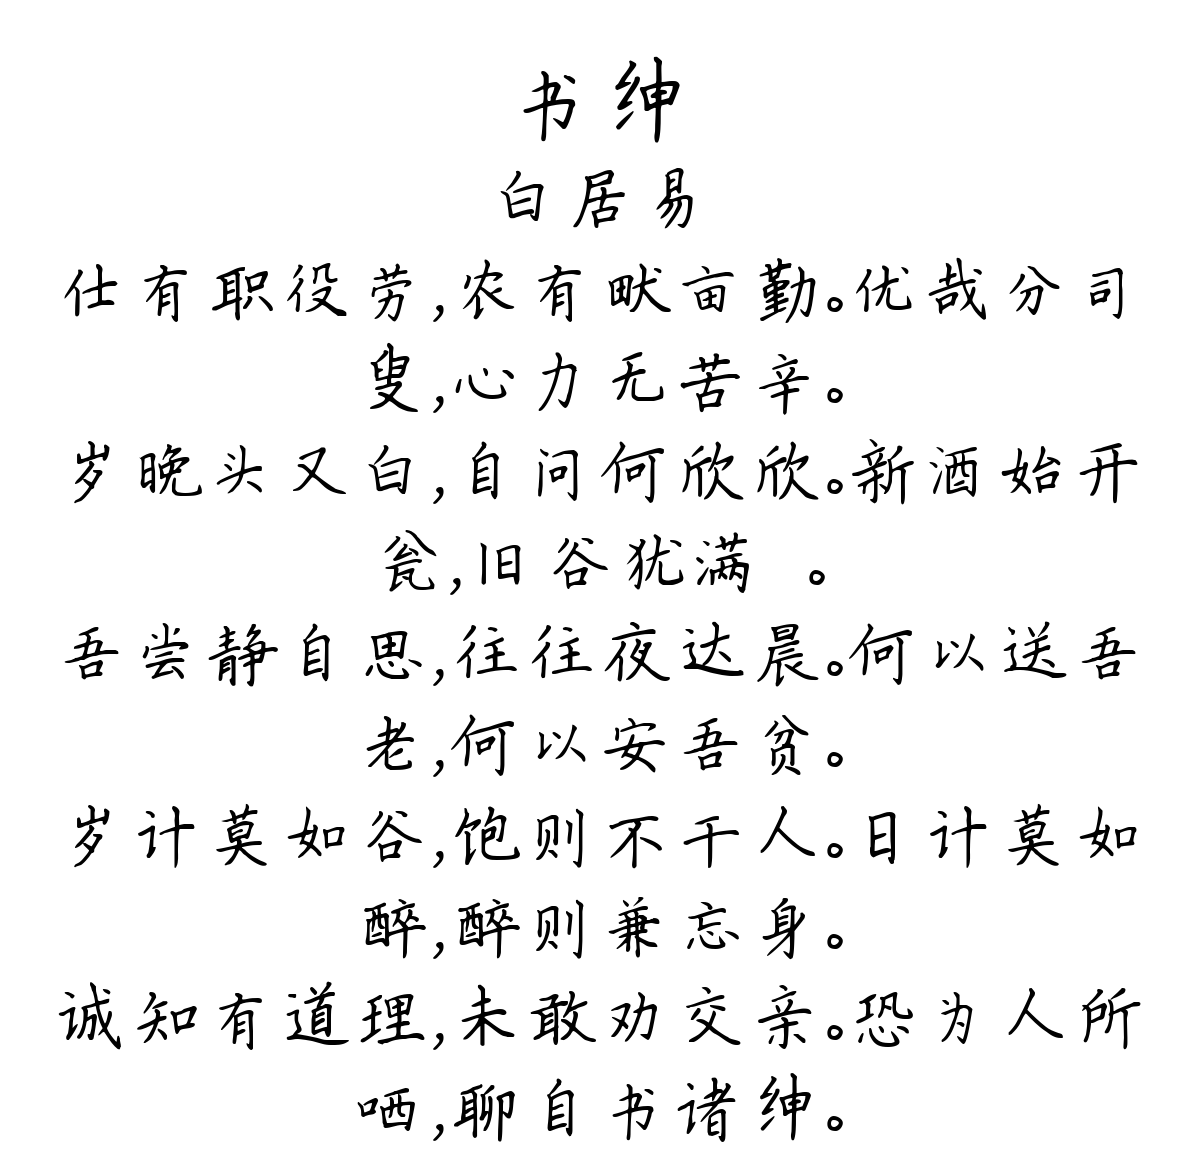 书绅
白居易
仕有职役劳,农有畎亩勤。优哉分司
叟,心力无苦辛。
岁晚头又白,自问何欣欣。新酒始开
瓮,旧谷犹满 。
吾尝静自思,往往夜达晨。何以送吾
老,何以安吾贫。
岁计莫如谷,饱则不干人。日计莫如
醉,醉则兼忘身。
诚知有道理,未敢劝交亲。恐为人所
哂,聊自书诸绅。